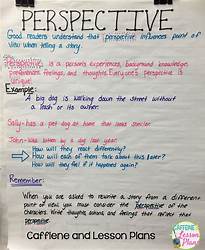 PERSPECTIVE
Good readers understand that perspective influences point of
view when telling a story.
Perspective is a person's experiences, background knowledge,
preferences, feelings, and thoughts. Everyone's perspective is
unique!
Example:
A big dog is walking down the street without
a leash or its owner.
Sally-has a pet dog at home that looks similar.
John-was bitten by a dog last year.
How will they react differently?
How will each of them talk about this later?
How will they feel if it happened again?
Remember:
When you are asked to rewrite a story from a different
point of view, you must consider the perspective of the
characters. Write thoughts, actions and feelings that reflect that
perspective.
Caffeine and Lesson Plans
CAFFEINE
Lesson
Plans